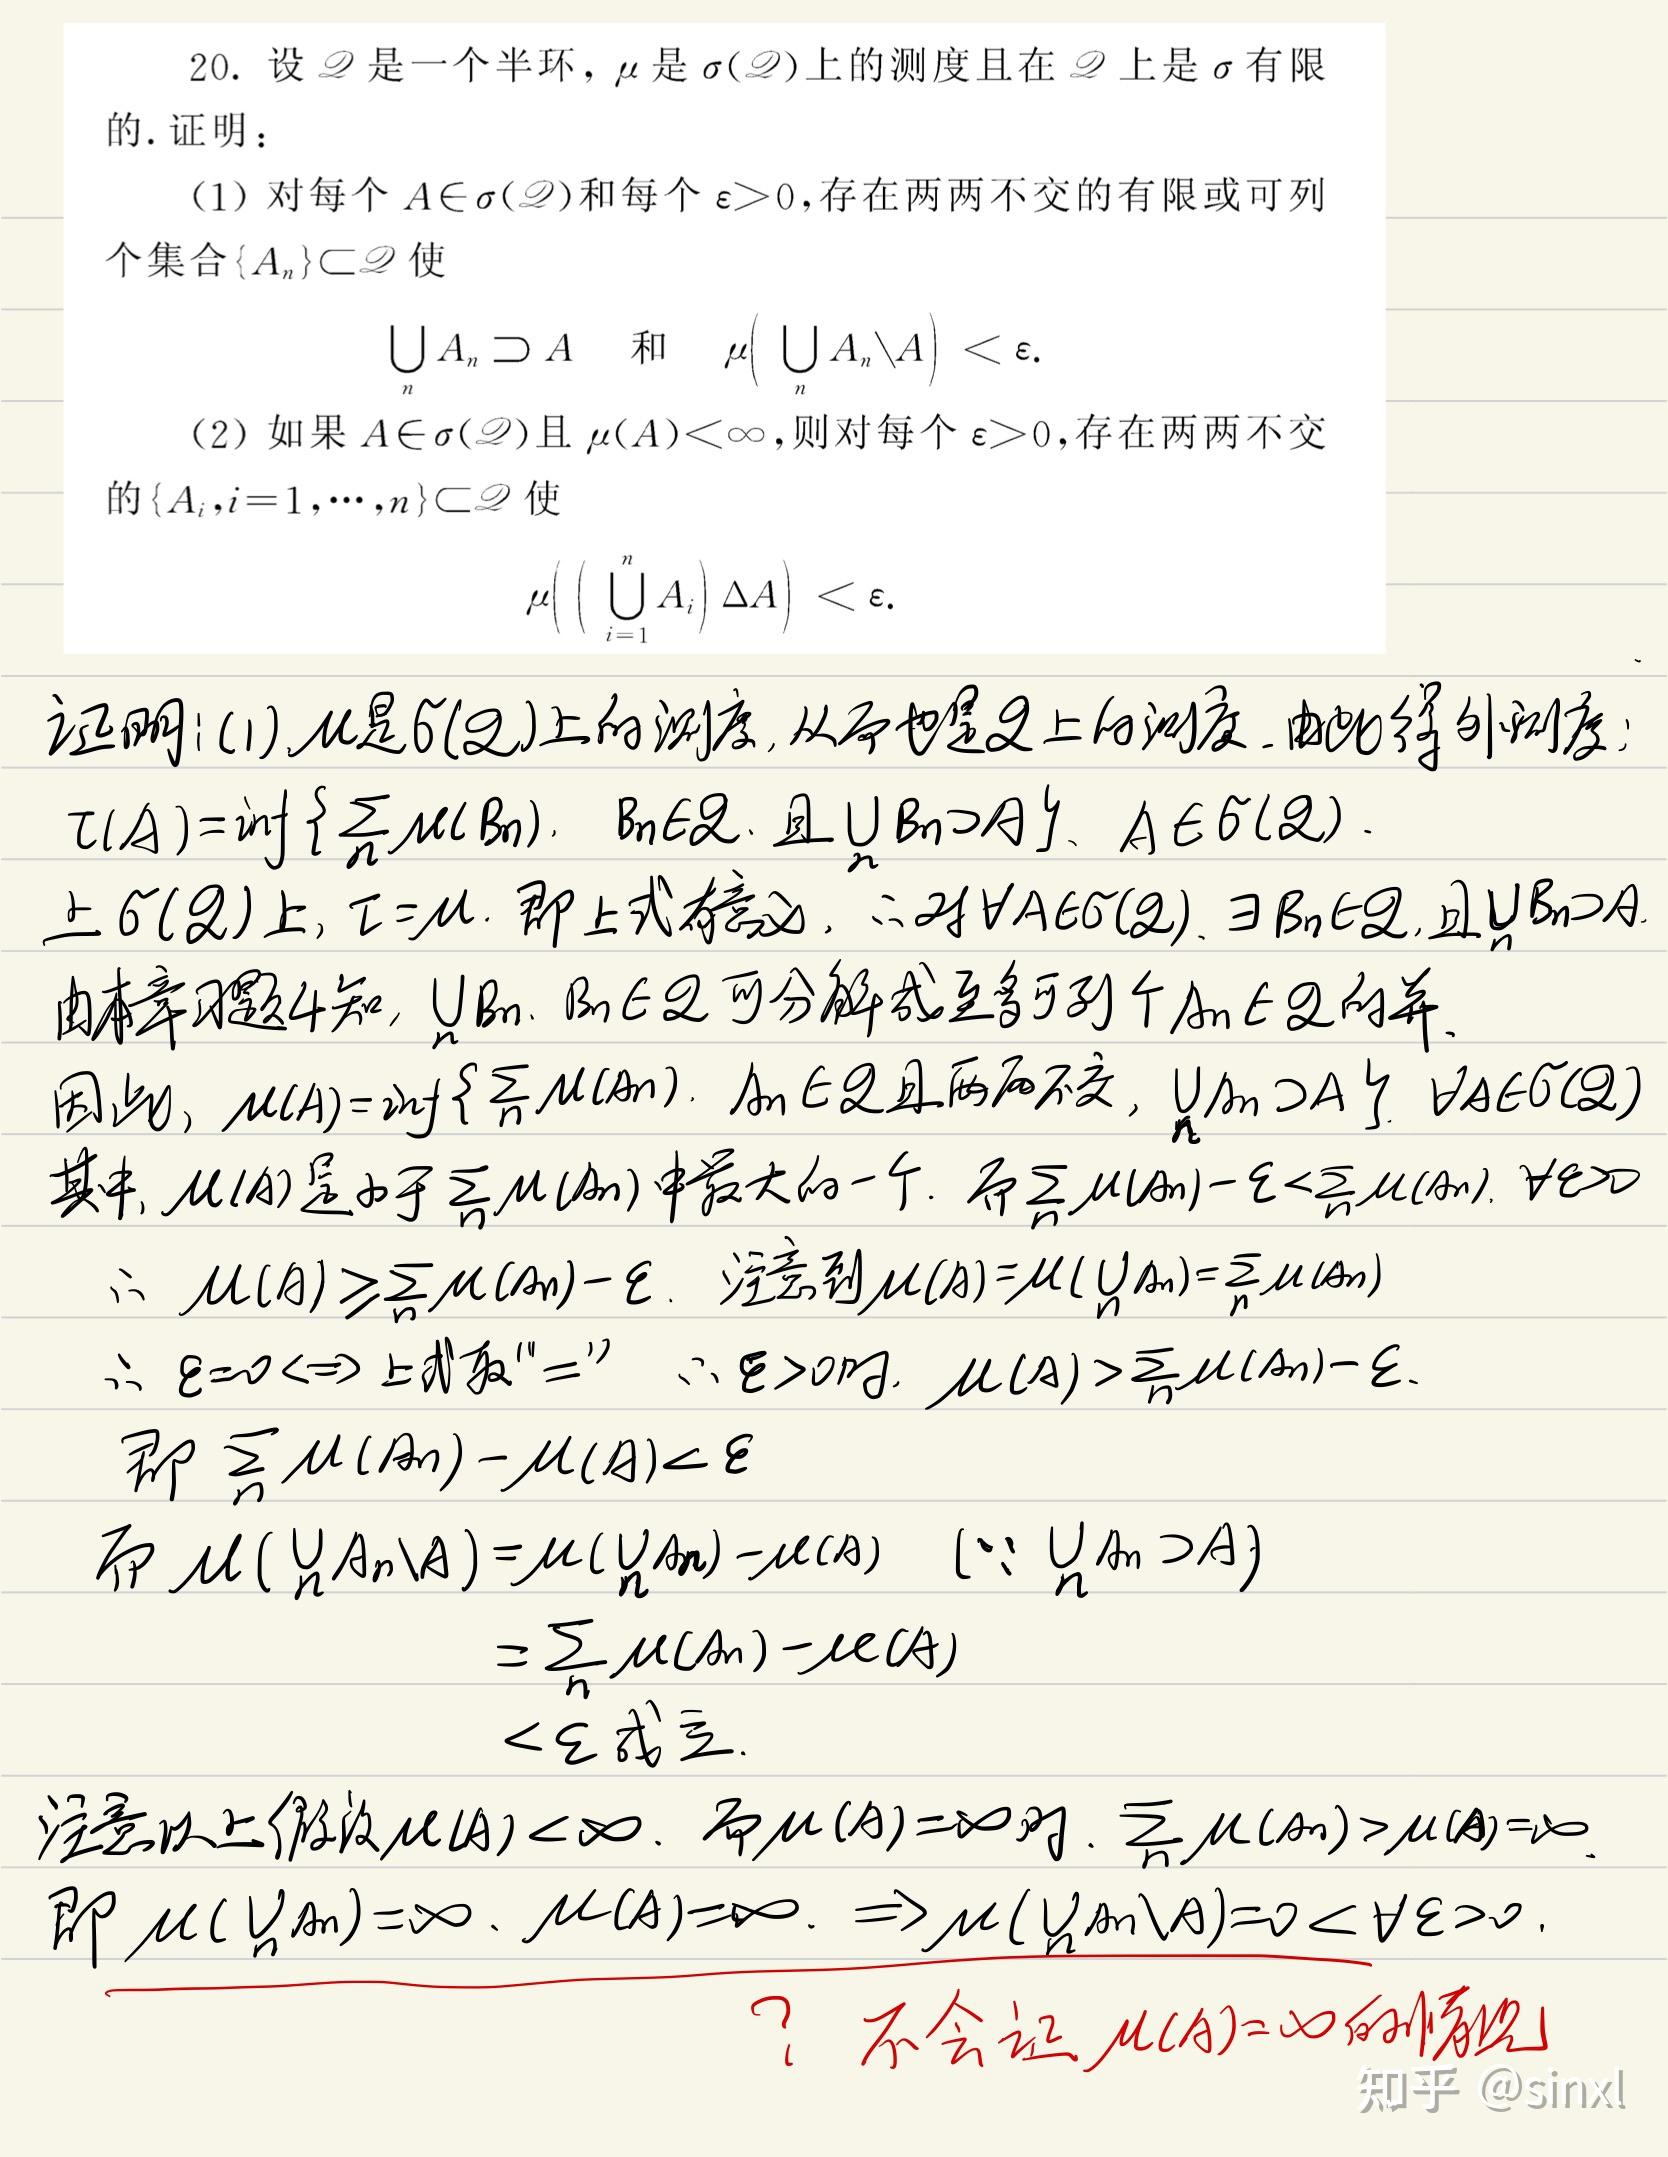 20. 设 𝒬 是一个半环, μ 是 σ(𝒬)上的测度且在 𝒬 上是 σ 有限
的. 证明:
(1) 对每个 A∈σ(𝒬)和每个 ε>0,存在两两不交的有限或可列
个集合{Aₙ}⊂𝒬 使
⋃ₙ Aₙ ⊃ A 和 μ(⋃ₙ Aₙ\A) < ε.
(2) 如果 A∈σ(𝒬)且 μ(A)<∞,则对每个 ε>0,存在两两不交
的{Aᵢ,i=1,⋯,n}⊂𝒬 使
μ((⋃ᵢ₌₁ⁿ Aᵢ) ΔA) < ε.
证明:(1) μ是σ(𝒬)上的测度,从而也是𝒬上的测度.由此得外测度:
τ(A)=inf{∑ₙ μ(Bₙ). Bₙ∈𝒬. 且⋃ₙ Bₙ⊃A}、A∈σ(𝒬).
上σ(𝒬)上, τ=μ. 即上式有意义, ∴对∀A∈σ(𝒬). ∃Bₙ∈𝒬,且⋃ₙBₙ⊃A.
由本章习题4知, ⋃ₙBₙ. Bₙ∈𝒬可分解成至多可列个Aₙ∈𝒬的并.
因此, μ(A)=inf{∑ₙ μ(Aₙ). Aₙ∈𝒬且两两不交, ⋃ₙAₙ⊃A}. ∀A∈σ(𝒬)
其中, μ(A)是小于∑ₙ μ(Aₙ)中最大的一个. 而∑ₙ μ(Aₙ)-ε<∑ₙ μ(Aₙ). ∀ε>0
∴ μ(A)≥∑ₙ μ(Aₙ)-ε. 注意到μ(A)=μ(⋃ₙAₙ)=∑ₙ μ(Aₙ)
∴ ε=0<=>上式取"=" ∴ε>0时. μ(A)>∑ₙ μ(Aₙ)-ε.
即 ∑ₙ μ(Aₙ)-μ(A)<ε
而 μ(⋃ₙAₙ\A)=μ(⋃ₙAₙ)-μ(A) (∵ ⋃ₙAₙ⊃A)
=∑ₙ μ(Aₙ)-μ(A)
<ε 成立.
注意以上假设μ(A)<∞. 而μ(A)=∞时. ∑ₙ μ(Aₙ)>μ(A)=∞.
即 μ(⋃ₙAₙ)=∞、μ(A)=∞. =>μ(⋃ₙAₙ\A)=0<∀ε>0.
? 不会证 μ(A)=∞的情况
知乎 @sinxl